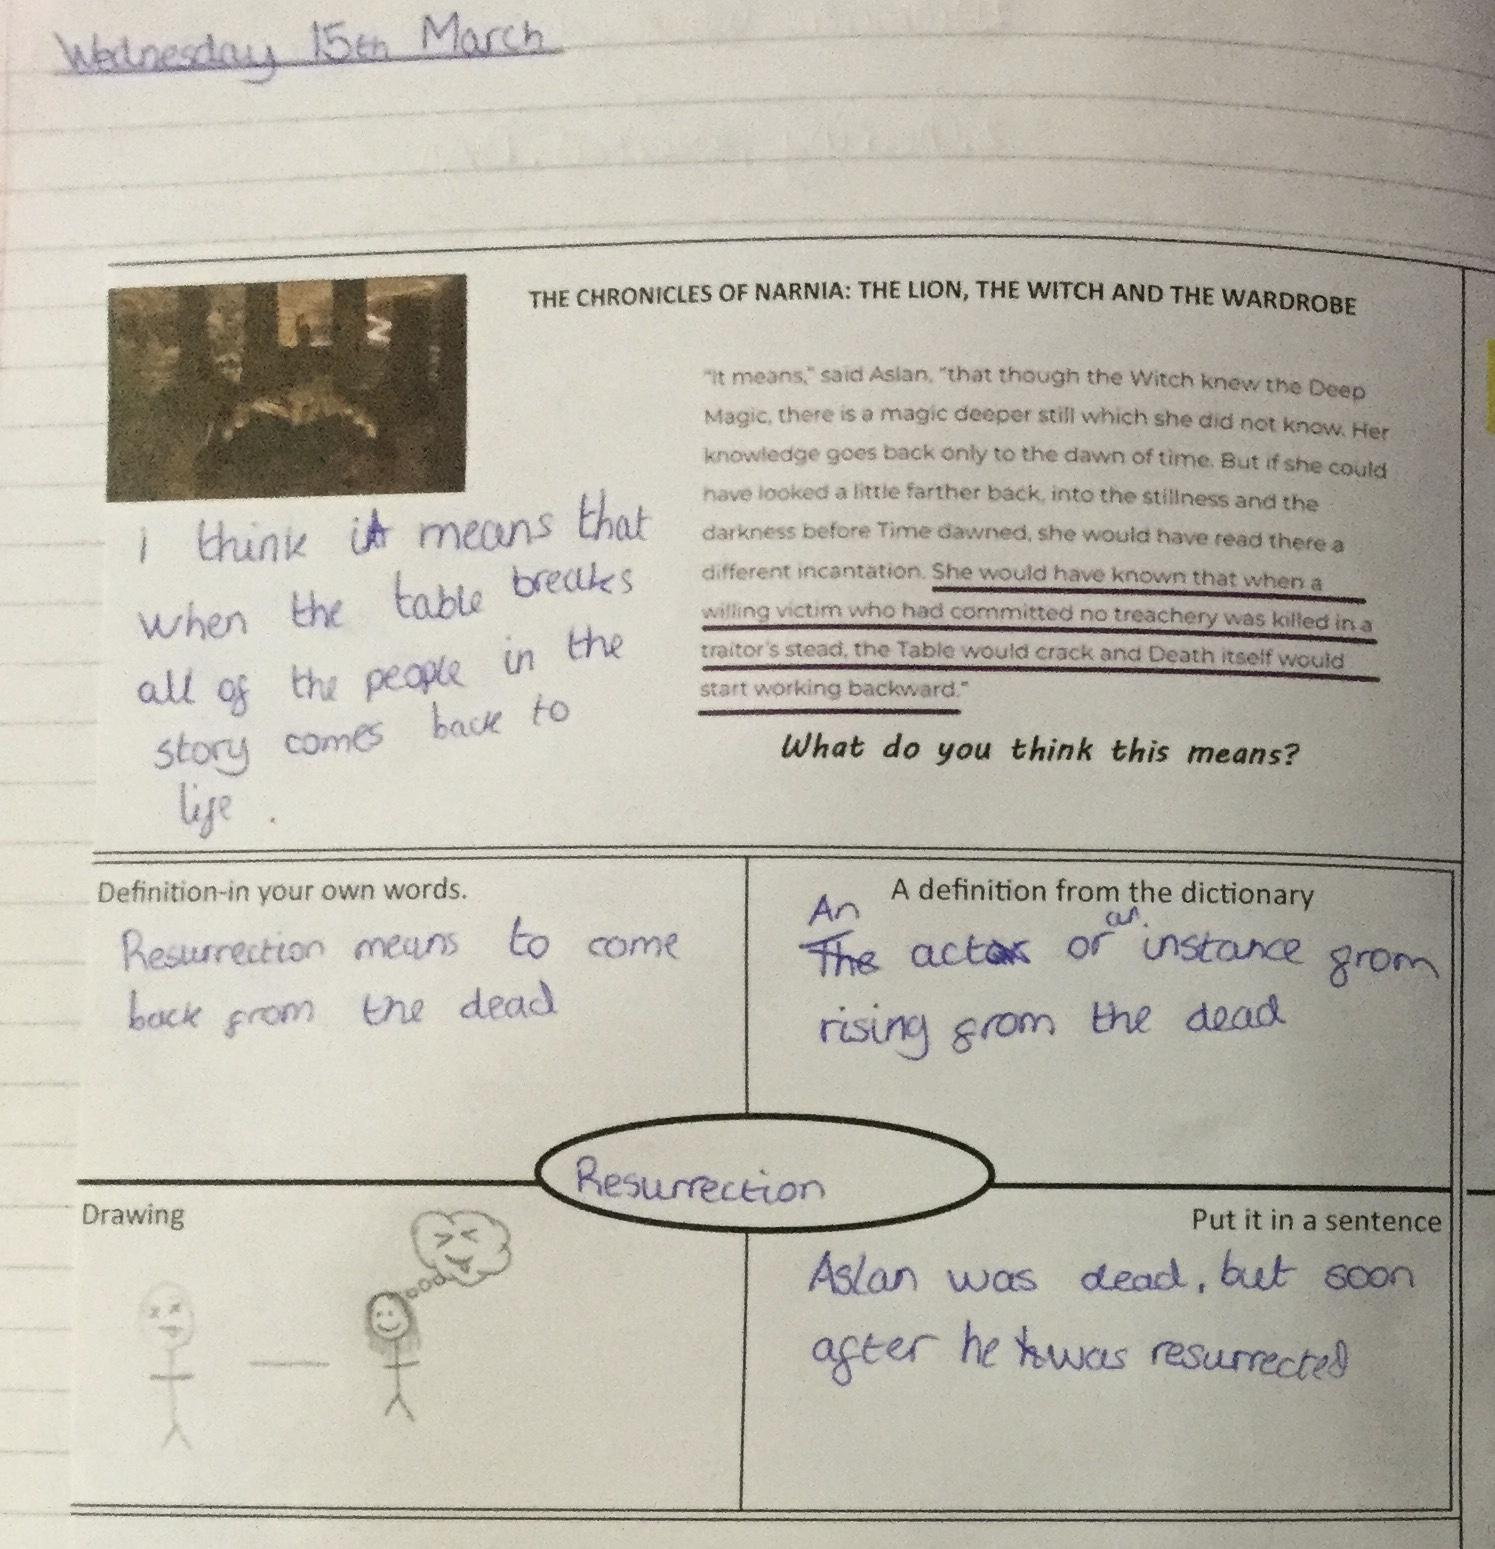 Wednesday 15th March
THE CHRONICLES OF NARNIA: THE LION, THE WITCH AND THE WARDROBE
"It means," said Aslan, "that though the Witch knew the Deep
Magic, there is a magic deeper still which she did not know. Her
knowledge goes back only to the dawn of time. But if she could
have looked a little farther back, into the stillness and the
darkness before Time dawned, she would have read there a
different incantation. She would have known that when a
willing victim who had committed no treachery was killed in a
traitor's stead, the Table would crack and Death itself would
start working backward."
What do you think this means?
I think it means that
when the table breaks
all of the people in the
story comes back to
life.
Definition-in your own words.
Resurrection means to come
back from the dead
A definition from the dictionary
An
The act or an instance from
rising from the dead
Resurrection
Drawing
Put it in a sentence
Aslan was dead, but soon
after he was resurrected